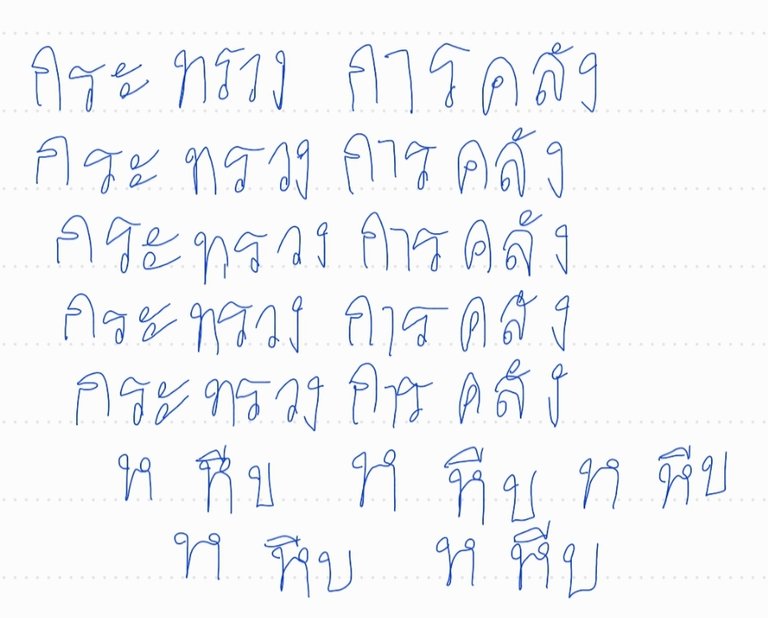 กระทรวง การคลัง
กระทรวง การคลัง
กระทรวง การคลัง
กระทรวง การคลัง
กระทรวง การคลัง
ห หีบ ห หีบ ห หีบ
ห หีบ ห หีบ